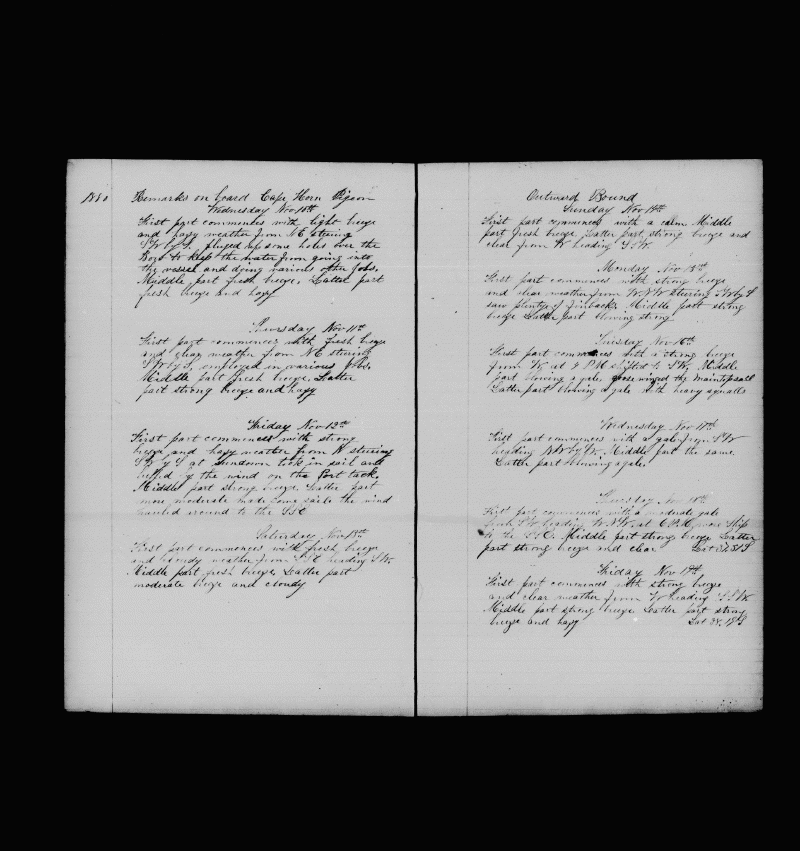 1880 Remarks on board Cape Horn Pigeon
Wednesday Nov 10th
First part commences with light breeze
and hazy weather from NE steering
SW by S. pluged up some holes over the
Bow to keep the water from going into
the vessel and doing various other jobs.
Middle part fresh breeze, Latter part
fresh breeze and hazy
Thursday Nov 11th
First part commences with fresh breeze
and clear weather from NE steering
SW by S, employed in various jobs.
Middle part fresh breeze, Latter
part strong breeze and hazy
Friday Nov 12th
First part commences with strong
breeze and hazy weather from N steering
SW by S at sundown took in sail and
luffed by the wind on the Port tack,
Middle part strong breeze Latter part
more moderate made some sail the wind
hauled around to the SSE
Saturday Nov 13th
First part commences with fresh breeze
and cloudy weather from SSE heading SW.
Middle part fresh breeze, Latter part
moderate breeze and cloudy
Outward Bound
Sunday Nov 14th
First part commences with a calm Middle
part fresh breeze Latter part strong breeze and
clear from W heading SSW.
Monday Nov 15th
First part commences with strong breeze
and clear weather from W.N.W steering SW by S
saw plenty of finbacks Middle part strong
breeze Latter part blowing strong
Tuesday Nov 16th
First part commences with a strong breeze
from W. at PM shifted to SW, Middle
part blowing a gale, goose winged the maintopsail
Latter part blowing a gale with heavy squalls
Wednesday Nov 17th
First part commences with a gale from SW
heading NW by W. Middle part the same
Latter part blowing a gale.
Thursday Nov 18th
First part commences with a moderate gale
from SW heading W.N.W. at 6 P.M. wore Ship
to the S.S.E. Middle part strong breeze Latter
part strong breeze and clear Lat
Friday Nov 19th
First part commences with strong breeze
and clear weather from W heading S.S.W.
Middle part strong breeze Latter part strong
breeze and hazy Lat